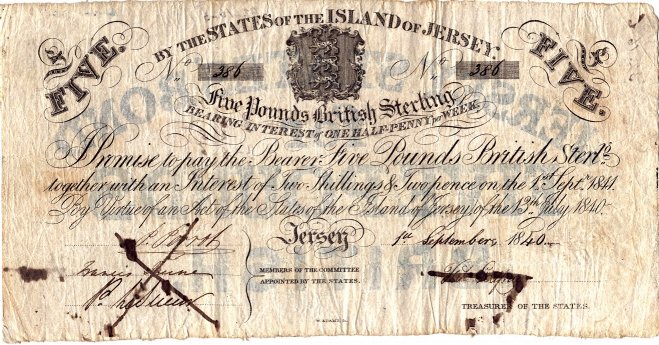 BY THE STATES OF THE ISLAND OF JERSEY.
£ FIVE.
£ FIVE.
No. 386
No. 386
Five Pounds British Sterling
BEARING INTEREST of ONE HALF-PENNY per WEEK.
I Promise to pay the Bearer Five Pounds British Sterlg.
together with an Interest of Two Shillings & Two pence on the 1st. Septr. 1841.
By Virtue of an Act of the States of the Island of Jersey, of the 13th. July 1840.
Jersey 1st September 1840
Francis
MEMBERS OF THE COMMITTEE
APPOINTED BY THE STATES.
TREASURER OF THE STATES.
W. ADAMS, Sc.
JERSEY